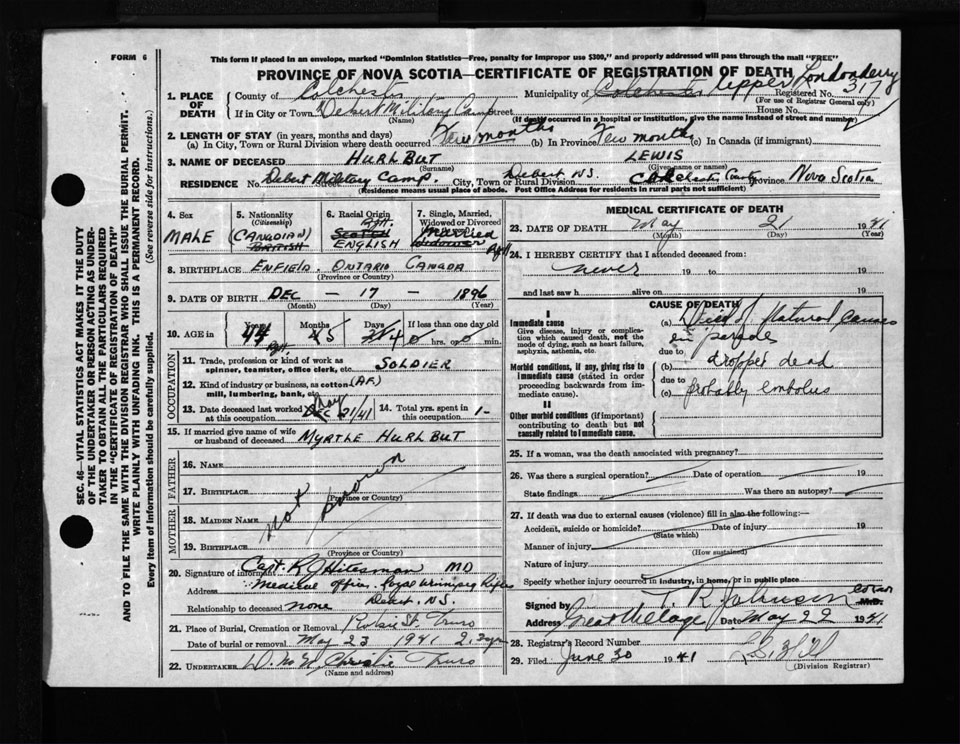 FORM 6
This form if placed in an envelope, marked "Dominion Statistics—Free, penalty for improper use $300," and properly addressed will pass through the mail "FREE"
PROVINCE OF NOVA SCOTIA—CERTIFICATE OF REGISTRATION OF DEATH
1. PLACE OF DEATH
County of Colchester Municipality of Colchester Upper Londonderry
Registered No. 317
(For use of Registrar General only)
If in City or Town Debert Military Camp Street House No.
(Name) (If death occurred in a hospital or institution, give the name instead of street and number)
2. LENGTH OF STAY (in years, months and days)
(a) In City, Town or Rural Division where death occurred Few months (b) In Province Few months (c) In Canada (if immigrant)
3. NAME OF DECEASED HURLBUT LEWIS
(Surname) (Given name or names)
RESIDENCE No. Debert Military Camp Street City, Town or Rural Division Debert N.S. Colchester County Province Nova Scotia
(Residence means usual place of abode. Post Office Address for residents in rural parts not sufficient)
4. Sex
MALE
5. Nationality
(Citizenship)
(CANADIAN)
BRITISH
6. Racial Origin
SCOTCH
ENGLISH
7. Single, Married, Widowed or Divorced
Married
Widower
8. BIRTHPLACE ENFIELD. ONTARIO CANADA
(Province or Country)
9. DATE OF BIRTH DEC — 17 — 1896
(Month) (Day) (Year)
10. AGE in
Years Months Days If less than one day old
44 5 4 0 hrs. or 0 min.
OCCUPATION
11. Trade, profession or kind of work as spinner, teamster, office clerk, etc. SOLDIER
12. Kind of industry or business, as cotton mill, lumbering, bank, etc. (AF)
13. Date deceased last worked at this occupation May 21/41
14. Total yrs. spent in this occupation 1-
15. If married give name of wife or husband of deceased MYRTLE HURLBUT
FATHER
16. NAME
17. BIRTHPLACE
(Province or Country)
not known
MOTHER
18. MAIDEN NAME
19. BIRTHPLACE
(Province or Country)
20. Signature of informant Capt. R J Hitesman MD
Address Medical Officer. Royal Winnipeg Rifles
Relationship to deceased none Debert. N.S.
21. Place of Burial, Cremation or Removal Robie St. Truro
Date of burial or removal May 23 1941 2.30 pm
22. UNDERTAKER Christie Truro
(Name and address)
MEDICAL CERTIFICATE OF DEATH
23. DATE OF DEATH May 21 1941
(Month) (Day) (Year)
24. I HEREBY CERTIFY that I attended deceased from:
never 19 to 19
and last saw h alive on 19
CAUSE OF DEATH
I
Immediate cause
Give disease, injury or complication which caused death, not the mode of dying, such as heart failure, asphyxia, asthenia, etc.
(a) Died of Natural Causes
on parade
due to
Morbid conditions, if any, giving rise to immediate cause (stated in order proceeding backwards from immediate cause).
(b) dropped dead
due to
(c) probably embolus
II
Other morbid conditions (if important) contributing to death but not causally related to immediate cause.
25. If a woman, was the death associated with pregnancy?
26. Was there a surgical operation? Date of operation 19
State findings Was there an autopsy?
27. If death was due to external causes (violence) fill in also the following:—
Accident, suicide or homicide? Date of injury 19
(State which)
Manner of injury
(How sustained)
Nature of injury
Specify whether injury occurred in industry, in home, or in public place
Signed by T. R. Johnson M.D.
Address Great Village Date May 22 1941
28. Registrar's Record Number
29. Filed June 30 1941
(Division Registrar)
SEC. 46—VITAL STATISTICS ACT MAKES IT THE DUTY
OF THE UNDERTAKER OR PERSON ACTING AS UNDER-
TAKER TO OBTAIN ALL THE PARTICULARS REQUIRED
IN THE "CERTIFICATE OF REGISTRATION OF DEATH"
AND TO FILE THE SAME WITH THE DIVISION REGISTRAR WHO SHALL ISSUE THE BURIAL PERMIT.
WRITE PLAINLY WITH UNFADING INK. THIS IS A PERMANENT RECORD.
Every item of information should be carefully supplied. (See reverse side for instructions.)